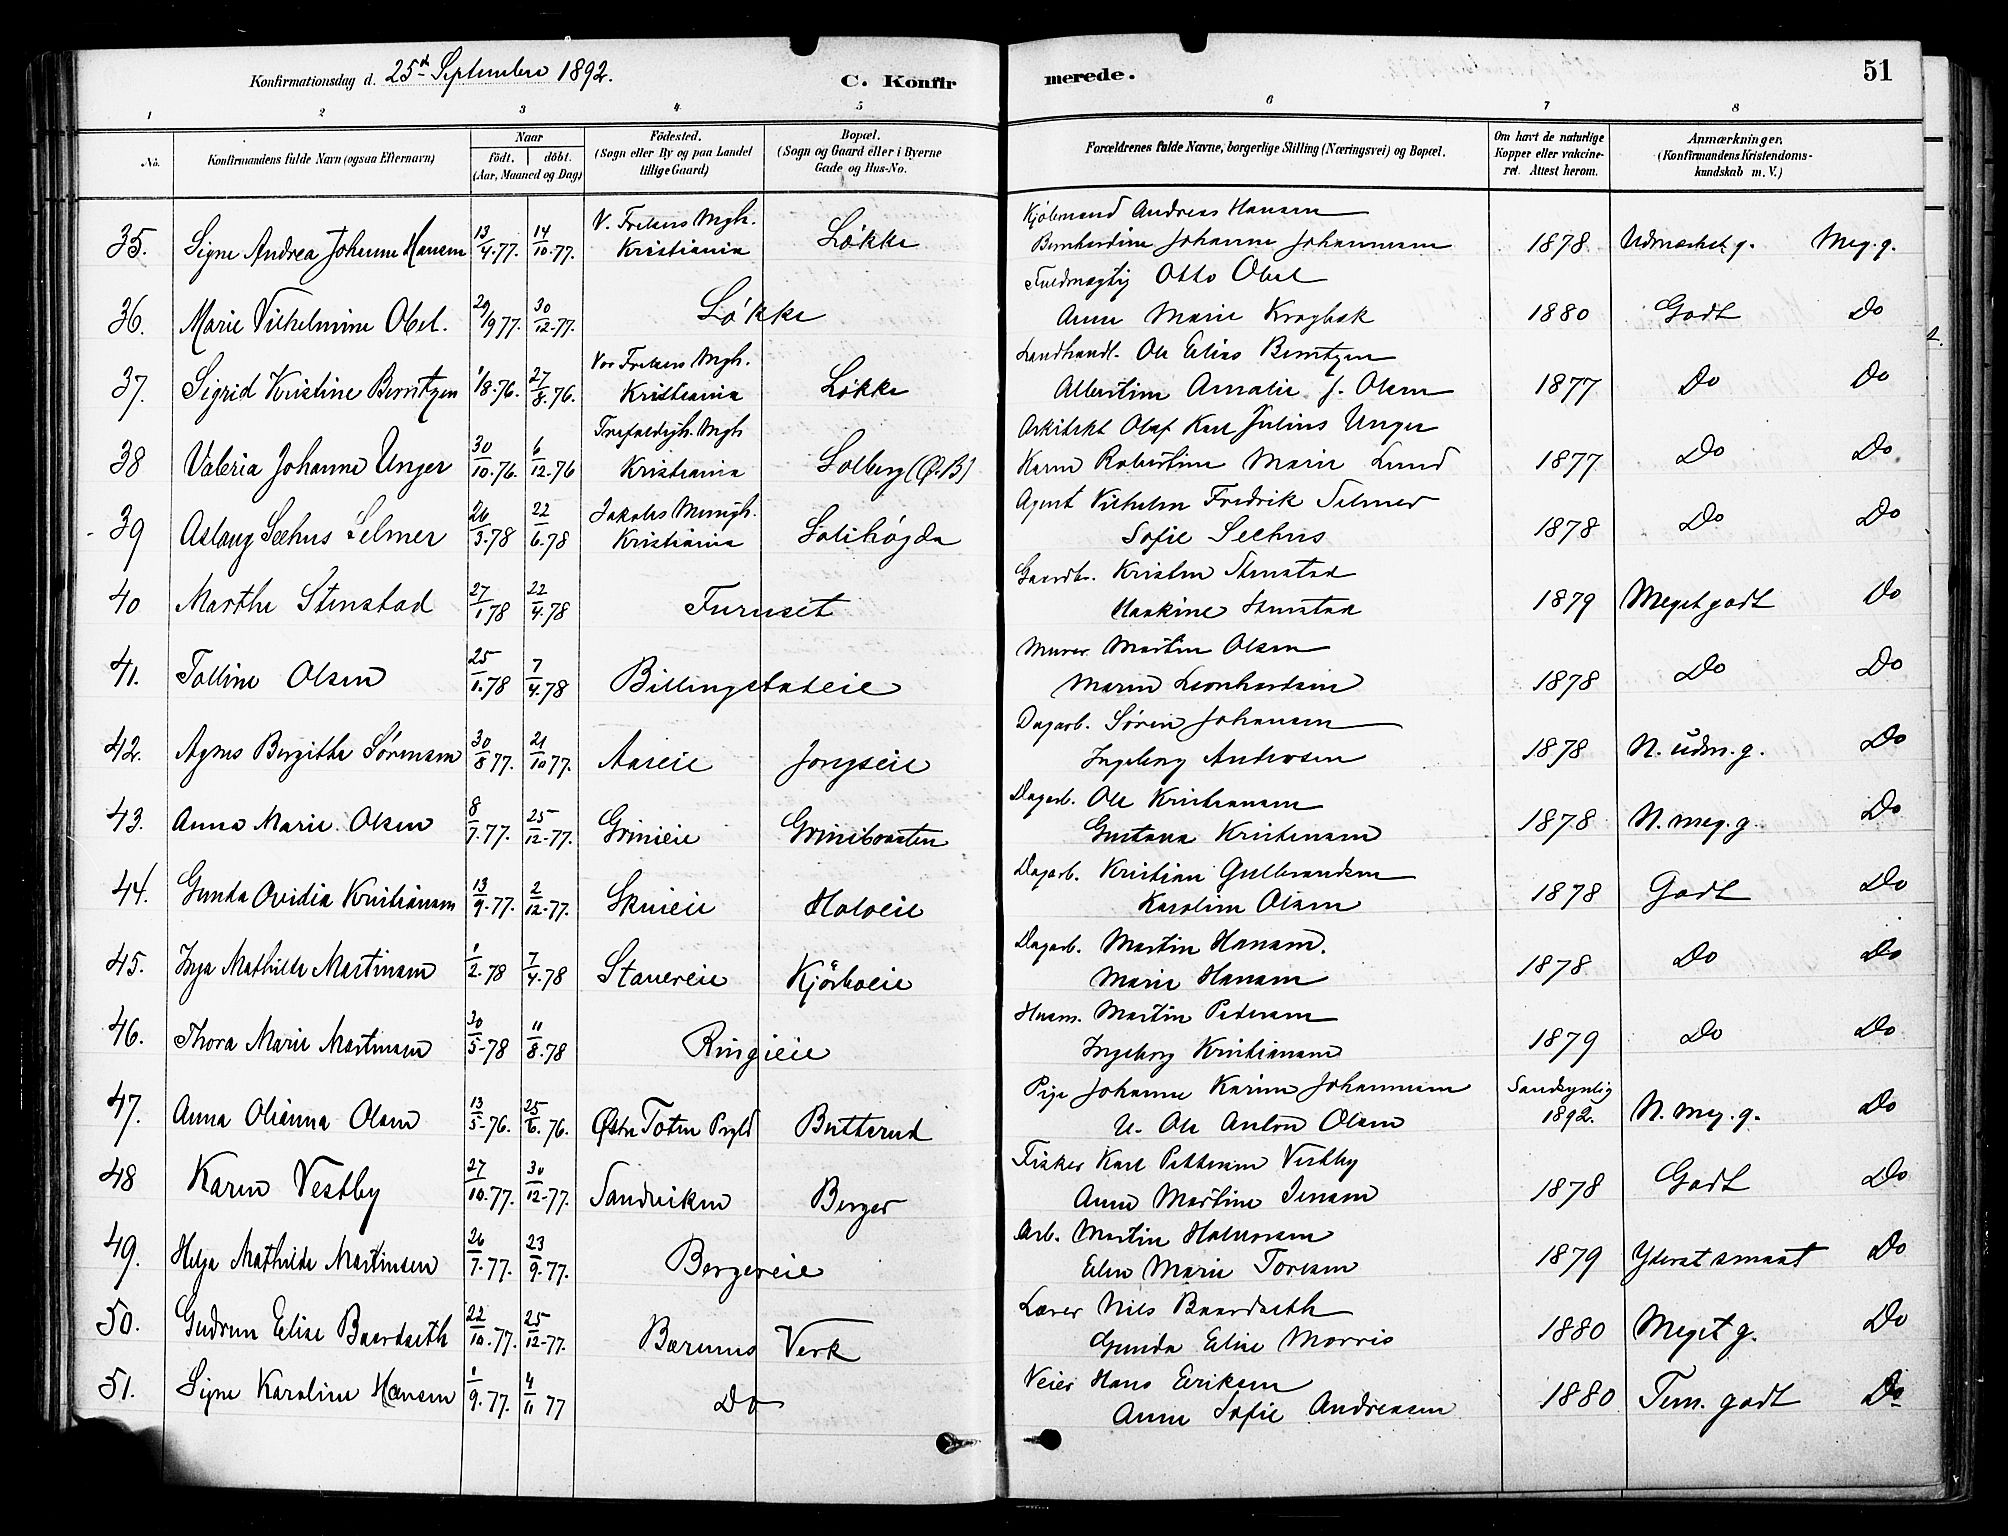 Konfirmationsdag d. 25d Septembre 1892.
C. Konfirmerede.
51
1 2 3 4 5 6 7 8
No.
Konfirmandens fulde Navn (ogsaa Efternavn)
Naar
født. | døbt.
(Aar, Maaned og Dag)
Fødested.
(Sogn eller By og paa Landet
tillige Gaard)
Bopæl.
(Sogn og Gaard eller i Byerne
Gade og Hus-No.
Forældrenes fulde Navne, borgerlige Stilling (Næringsvei) og Bopæl.
Om havt de naturlige
Kopper eller vakcine-
ret. Attest herom.
Anmærkninger.
(Konfirmandens Kristendoms-
kundskab m. V.)
V. Frelsers Mgh. Kjøbmand Andreas Hansen
35. Signe Andrea Johanne Hansen 13/4.77. 14/10.77. Kristiania Løkke Bernhardine Johanne Johannesen 1878 Udmærket g. Meg. g.
Fuldmægtig Otto Obel
36. Marie Vilhelmine Obel. 29/9 77. 30/12.77. Løkke Anne Marie Kragbak 1880 Godt Do
Vor Frelsers Mgh. Landhandl. Ole Elias Berntzen
37. Sigrid Kristine Berntzen 1/8.76. 27/8.76. Kristiania Løkke Albertine Amalie J. Olsen 1877 Do Do
Trefoldigh. Mgh Arkitekt Olaf Karl Julius Unger
38 Valeria Johanne Unger 30/10.76. 6/12.76 Kristiania Solberg (Ø.B) Karen Robertine Marie Lund 1877 Do Do
Jakobs Menigh. Agent Vilhelm Fredrik Selmer
39 Aslaug Seehus Selmer 26/3.78 22/6.78 Kristiania Solihøgda Sofie Seehus 1878 Do Do
Gaardbr. Kristen Stenstad
40 Marthe Stenstad 27/1.78 22/4.78 Furuset Maskine Stenstad 1879 Meget godt Do
Murer Martin Olsen
41. Tolline Olsen 25/1.78 7/4.78 Billingstadeie Maren Leonhardsen 1878 Do Do
Dagarb. Søren Johansen
42. Agnes Bergithe Sørensen 30/8 77. 21/10 77. Aaseie Jongseie Ingeborg Andersen 1878 N. udm. g. Do
Dagarb. Ole Kristiansen
43. Anna Marie Olsen 8/7.77. 25/12.77. Grinieie Gustava Kristensen 1878 N. meg. g. Do
Dagarb. Kristian Gulbrandsen
44. Gunda Ovidia Kristiansen 13/9.77. 2/12.77. Skuieie Holoeie Karoline Olsen 1878 Godt Do
Dagarb. Martin Hansen.
45. Inga Mathilde Martinsen 1/2.78 7/4.78 Stavereie Kjørboeie Marie Hansen 1878 Do Do
Husm. Martin Pedersen
46. Thora Marie Martinsen 30/5.78 11/8.78 Ringieie Ingeborg Kristiansen 1879 Do Do
Pige Johanne Karine Johannesen Sandsynlig
47. Anna Olianna Olsen 13/5.76. 25/6.76. Østre Toten Prgld Butterud U. Ole Anton Olsen 1892. N. meg. g. Do
Fisker Karl Pettersen Vestby
48 Karen Vestby 27/10.77. 30/12.77. Sandviken Berger Anne Martine Jensen 1878 Godt Do
Arb. Martin Halvorsen
49. Helga Mathilde Martinsen 26/7.77. 23/9.77. Bergereie Elen Marie Toresen 1879 Yderst smaat Do
Lærer Nils Baardseth
50. Gudrun Elise Baardseth 22/10.77. 25/12.77. Bærums Verk Gunda Elise Morris 1880 Meget g. Do
Veier Hans Eriksen
51. Signe Karoline Hansen 1/9.77. 4/11 77 Do Anne Sofie Andreasen 1880 Tem. godt Do